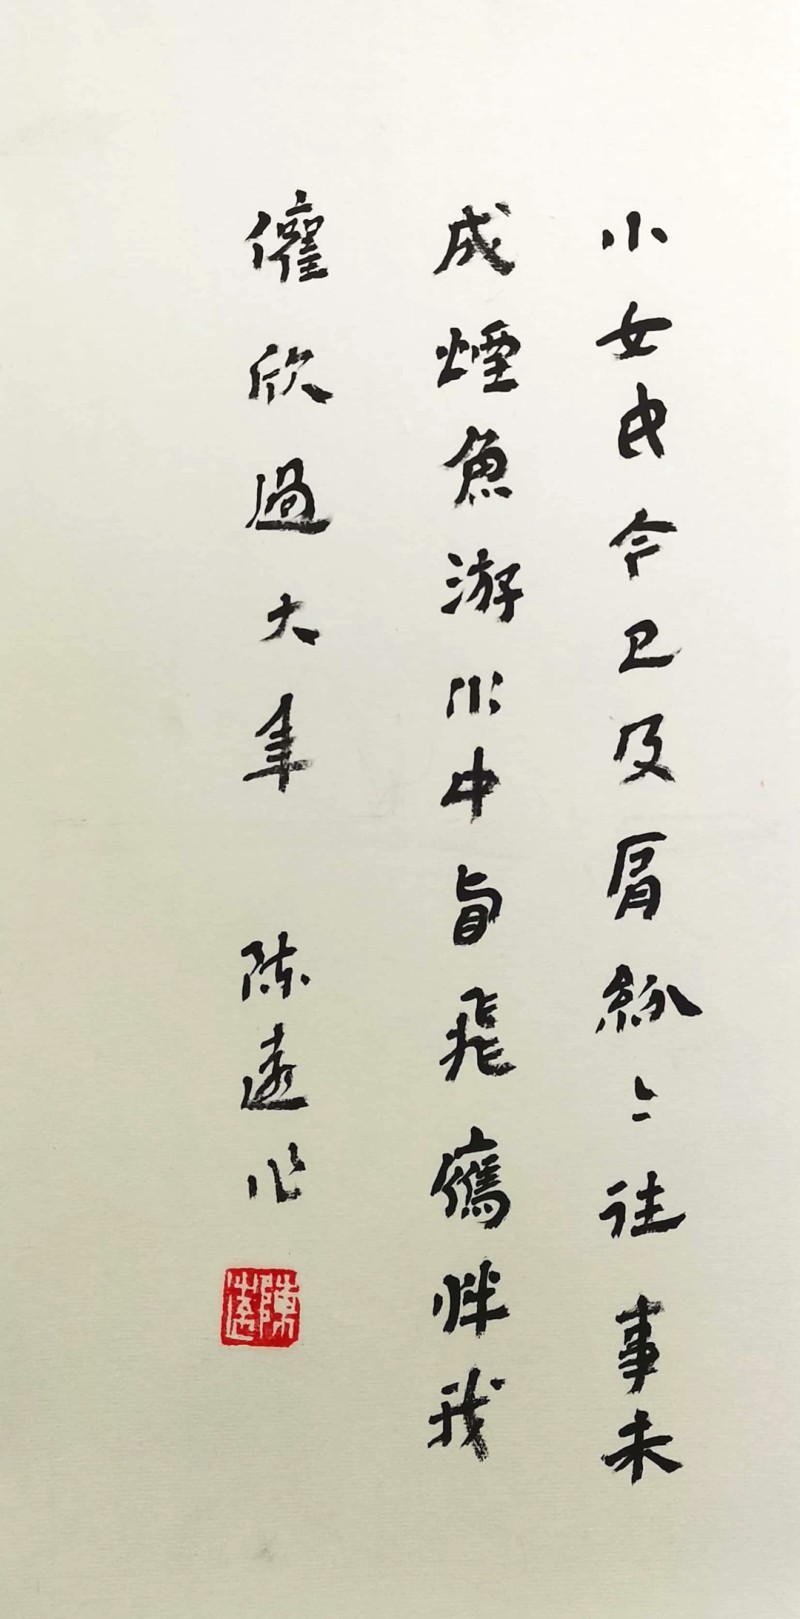 小女今已及肩紛々往事未
成煙魚游水中飛伴我
懽欣過大年 陈遠作
陳遠